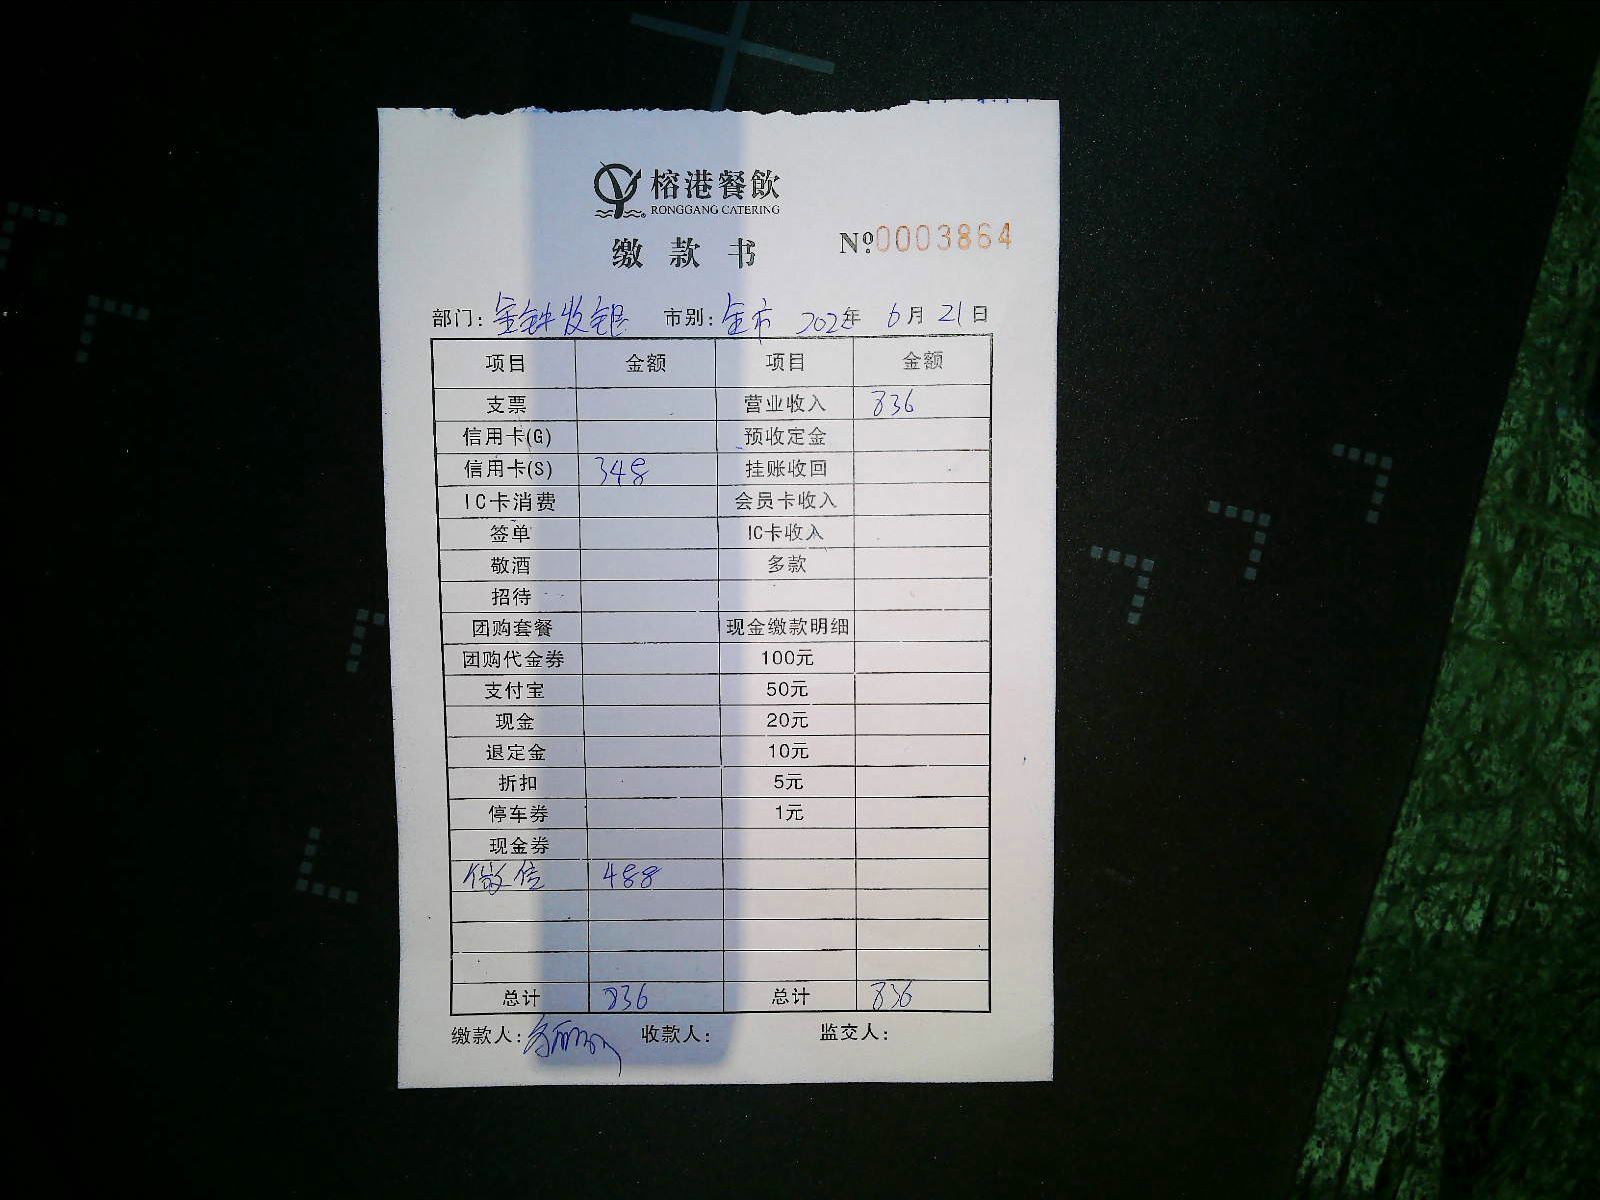 榕港餐飲
RONGGANG CATERING
缴款书 №0003864
部门：金钟收银 市别：全市 202 年 6月21日
项目 金额 项目 金额
支票 营业收入 836
信用卡(G) 预收定金
信用卡(S) 348 挂账收回
IC卡消费 会员卡收入
签单 IC卡收入
敬酒 多款
招待
团购套餐 现金缴款明细
团购代金券 100元
支付宝 50元
现金 20元
退定金 10元
折扣 5元
停车券 1元
现金券
微信 488
总计 836 总计 836
缴款人： 收款人： 监交人：